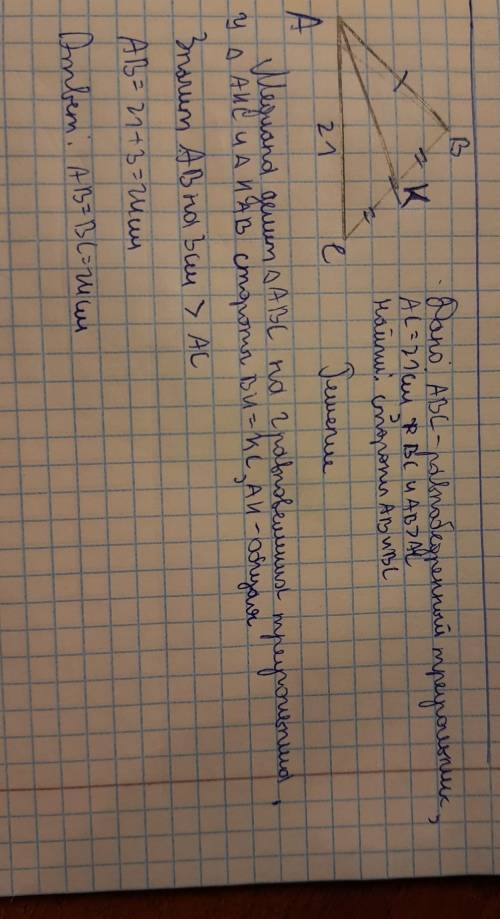 Дано: ABC-равнобедренный треугольник,
AC=21см, BC и AB>AC
Найти: стороны AB и BC
B
K
A
21
C
Решение
Медиана делит △ABC на 2 равновеликих треугольника,
У △AKC и △KAB стороны BK=KC, AK-общая
Значит AB на 3см > AC
AB=21+3=24см
Ответ: AB=BC=24см